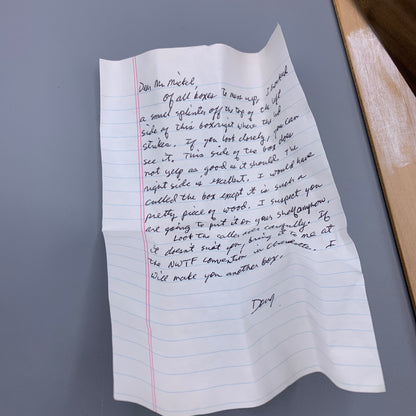 Dear Mr. Mickel
Of all boxes to mess up, I knocked
a small splinter off the top of the right
side of this box right where the lid
strikes. If you look closely, you can
see it. This side of the box does
not yelp as good as it should. The
right side is excellent. I would have
culled the box except it is such a
pretty piece of wood. I suspect you
are going to put it on your shelf anyhow.
Look the caller over carefully. If
it doesn't suit you, bring it to me at
the NWTF convention. I
will make you another box.